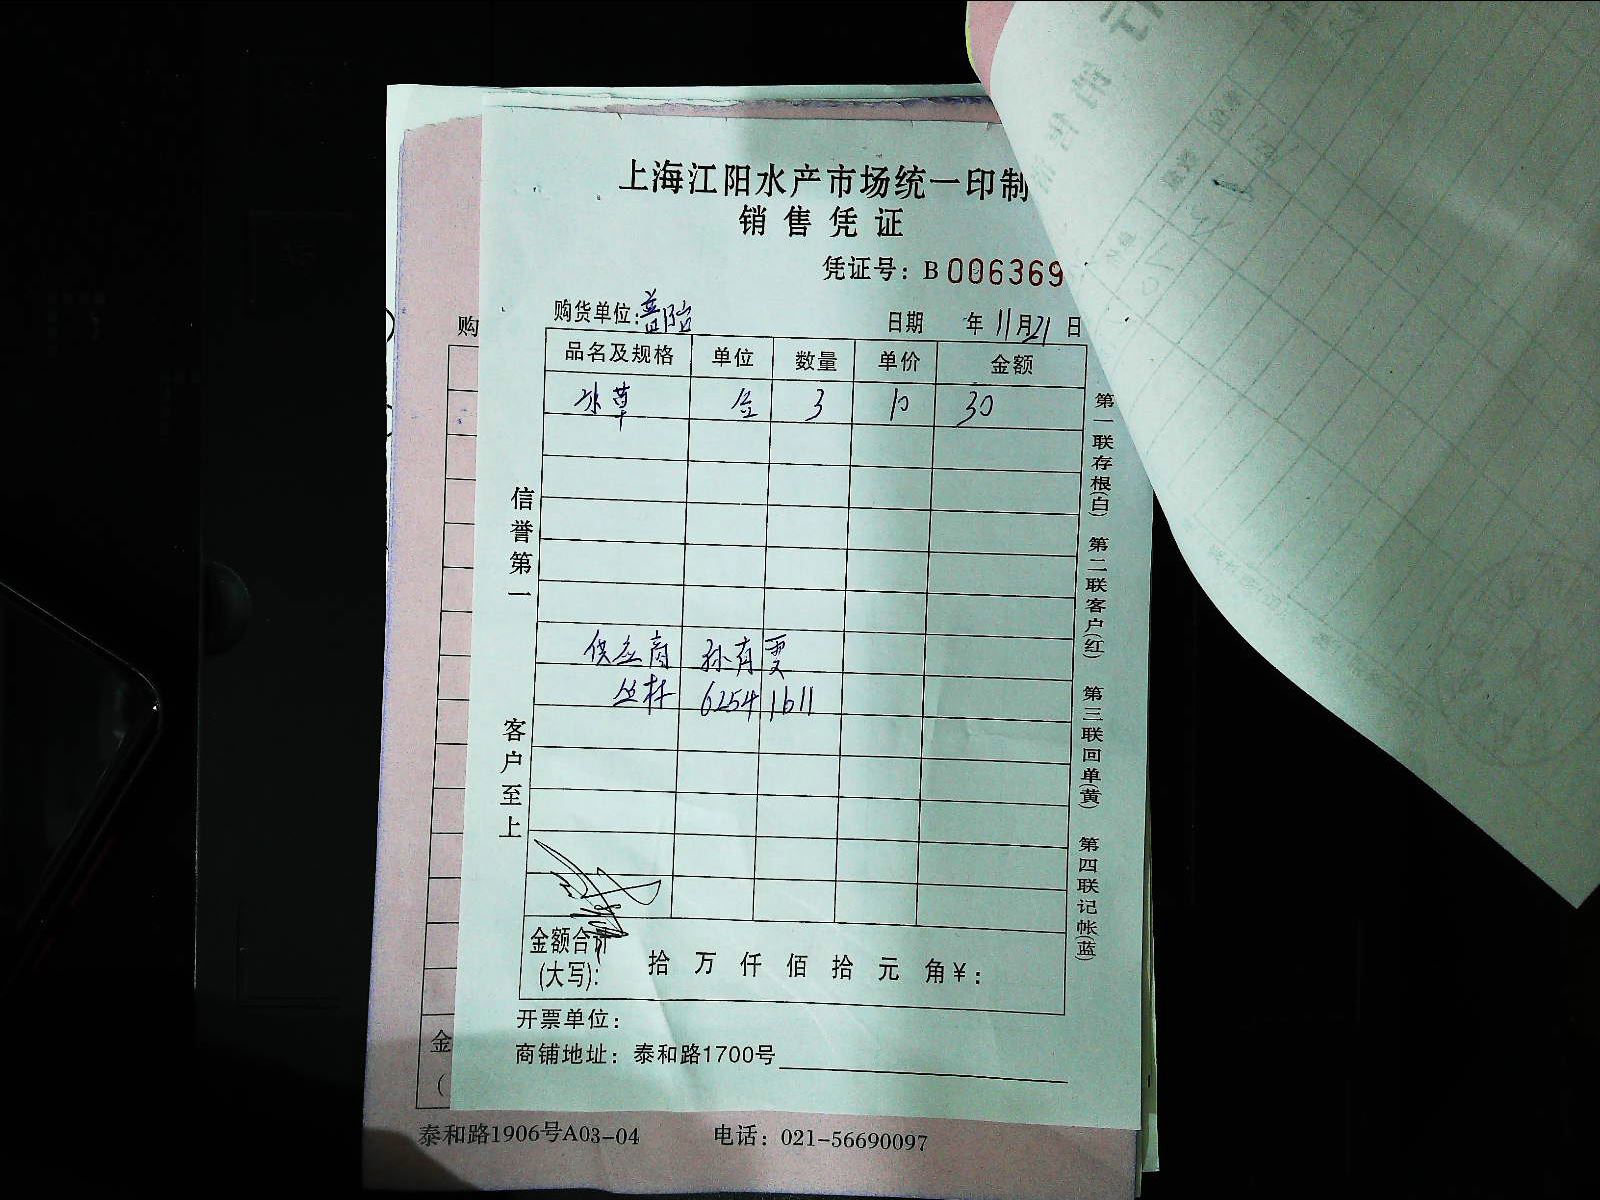 上海江阳水产市场统一印制
销售凭证
凭证号：B 006369
购货单位： 日期 年 11月21日
品名及规格 单位 数量 单价 金额
冰草 3 10 30
供应商 孙有
丛林 6254 1611
金额合计
(大写)： 拾 万 仟 佰 拾 元 角 ¥：
开票单位：
商铺地址：泰和路1700号
信誉第一
客户至上
第一联存根(白) 第二联客户(红) 第三联回单(黄) 第四联记帐(蓝)
购
金
（
泰和路1906号A03-04 电话：021-56690097